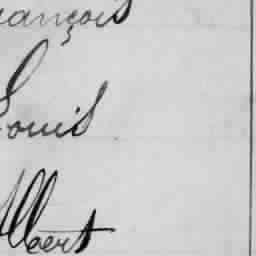 rançois
Louis
Albert